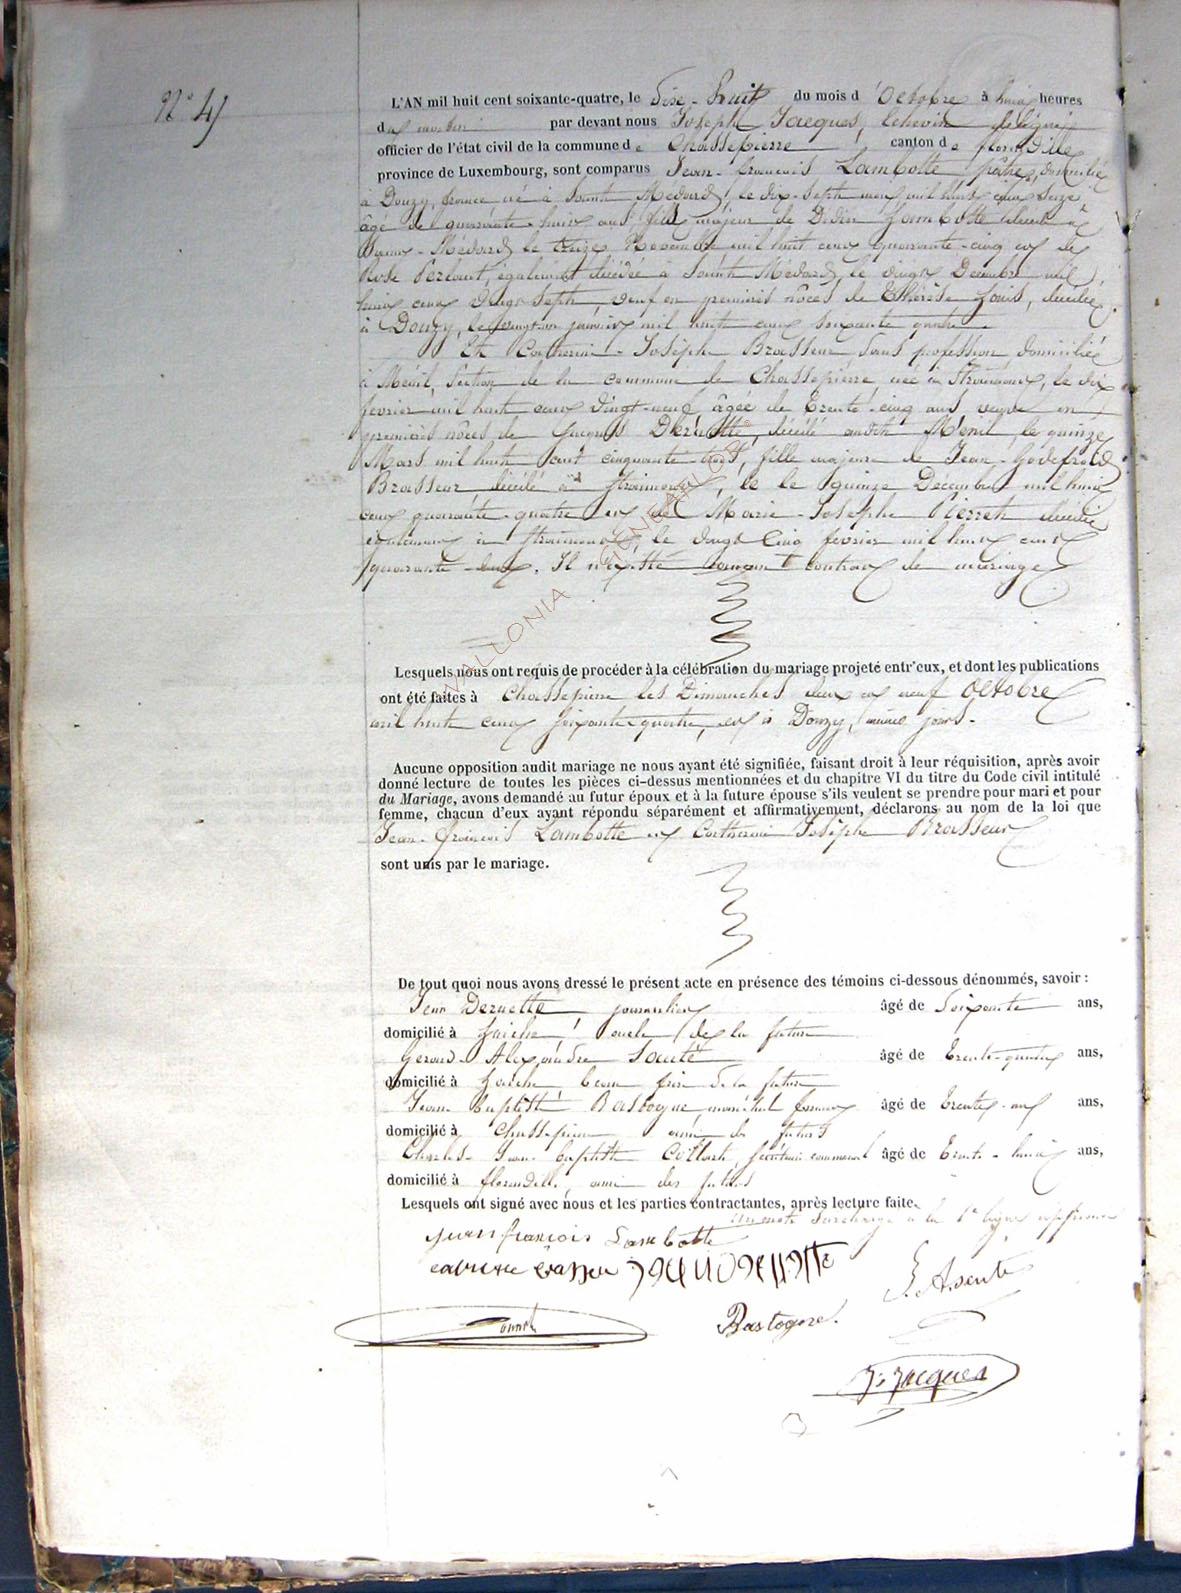 N° 4
L'AN mil huit cent soixante-quatre, le Dix-huit du mois d'Octobre à huit heures
du matin par devant nous Joseph Jacques, Echevin délégué
officier de l'état civil de la commune de Chassepierre canton de florenville
province de Luxembourg, sont comparus Jean-françois Lambotte pâtre, domicilié
à Douzy, france né à Saint Médard, le dix-sept mai mil huit cent seize
âgé de quarante-huit ans fils majeur de Didier Lambotte décédé à
Saint-Médard le treize Novembre mil huit cent quarante-cinq et de
Rose Perlout, également décédée à Saint Médard, le vingt Décembre mil
huit cent vingt-sept, veuf en premières nôces de Thérèse Louis, décédée
à Douzy, le vingt un janvier mil huit cent soixante quatre.
Et Catherine-Josèphe Brasseur sans profession, domiciliée
à Ménil, Section de la commune de Chassepierre, née à Straimont, le dix
février mil huit cent vingt-neuf âgée de Trente-cinq ans veuve en
premières nôces de Jacques Deruette, décédé audit Ménil, le quinze
Mars mil huit cent cinquante-trois, fille majeure de Jean-Godefroid
Brasseur décédé à Straimont, le le quinze Décembre mil huit
cent quarante-quatre et de Marie-Josèphe Pierret décédée
également à Straimont, le vingt Cinq février mil huit cent
quarante-deux. Il n'existe aucun contrat de mariage
Lesquels nous ont requis de procéder à la célébration du mariage projeté entr'eux, et dont les publications
ont été faites à Chassepierre les Dimanches deux et neuf Octobre
mil huit cent soixante-quatre, et à Douzy, mêmes jours.
Aucune opposition audit mariage ne nous ayant été signifiée, faisant droit à leur réquisition, après avoir
donné lecture de toutes les pièces ci-dessus mentionnées et du chapitre VI du titre du Code civil intitulé
du Mariage, avons demandé au futur époux et à la future épouse s'ils veulent se prendre pour mari et pour
femme, chacun d'eux ayant répondu séparément et affirmativement, déclarons au nom de la loi que
Jean-françois Lambotte et Catherine Josèphe Brasseur
sont unis par le mariage.
De tout quoi nous avons dressé le présent acte en présence des témoins ci-dessous dénommés, savoir :
Jean Deruette journalier âgé de Soixante ans,
domicilié à oncle de la future
Gérard-Alexandre âgé de Trente-quatre ans,
domicilié à beau frère de la future
Jean-Baptiste Bastogne maréchal ferrant âgé de Trente-neuf ans,
domicilié à Chassepierre ami des futurs
Charles-Jean-baptiste Collart, secrétaire communal âgé de Trente-huit ans,
domicilié à florenville, ami des futurs
Lesquels ont signé avec nous et les parties contractantes, après lecture faite.
un mot surchargé à la ligne approuvé
jean françois Lambotte
Bastogne.
J. Jacques
WALLONIA